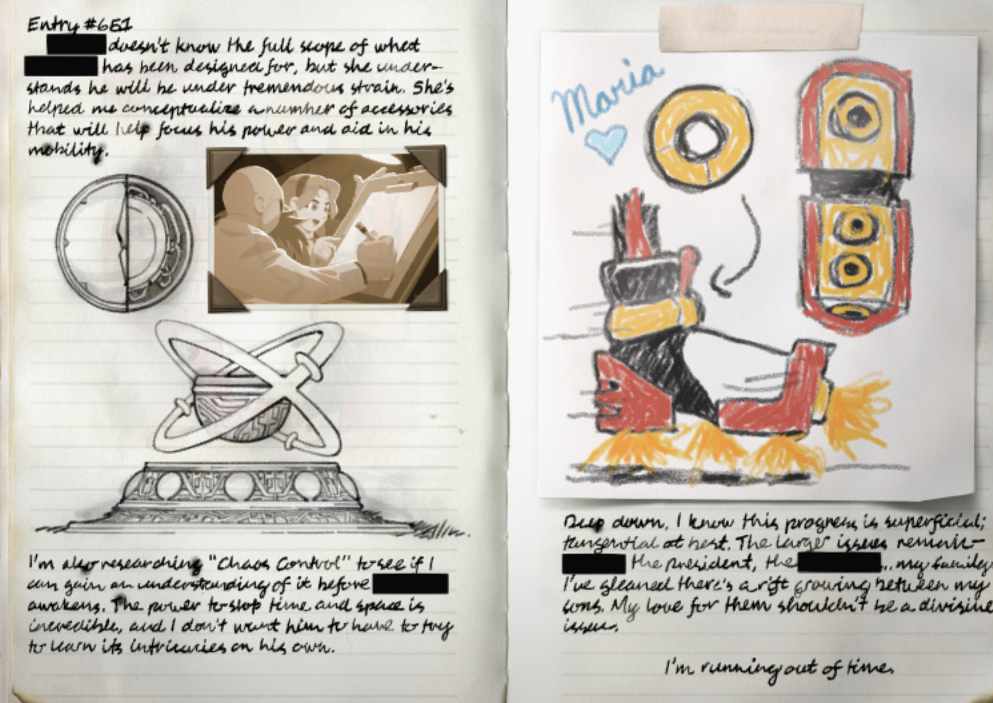 Entry #6E1
doesn't know the full scope of what
has been designed for, but she under-
stands he will be under tremendous strain. She's
helped me conceptualize a number of accessories
that will help focus his power and aid in his
mobility.
I'm also researching "Chaos Control" to see if I
can gain an understanding of it before
awakens. The power to stop time and space is
incredible, and I don't want him to have to try
to learn its intricacies on his own.
Maria
Deep down, I know this progress is superficial;
tangential at best. The larger issues remain-
the president, the ... my family
I've gleaned there's a rift growing between my
sons. My love for them shouldn't be a divisive
issue.
I'm running out of time.